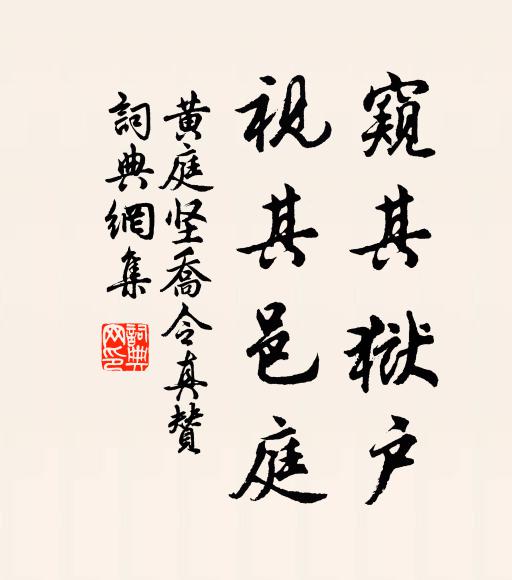 窺其獄户
視其邑庭
黄庭坚喬令真贊
詞典網集
詞典
网印